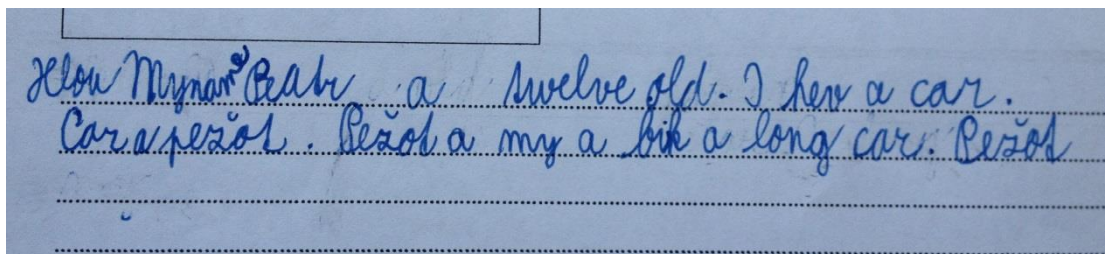 Hlou Myname Petr a twelve old. I hev a car.
Car a pežot. Pežot a my a bik a long car. Pežot